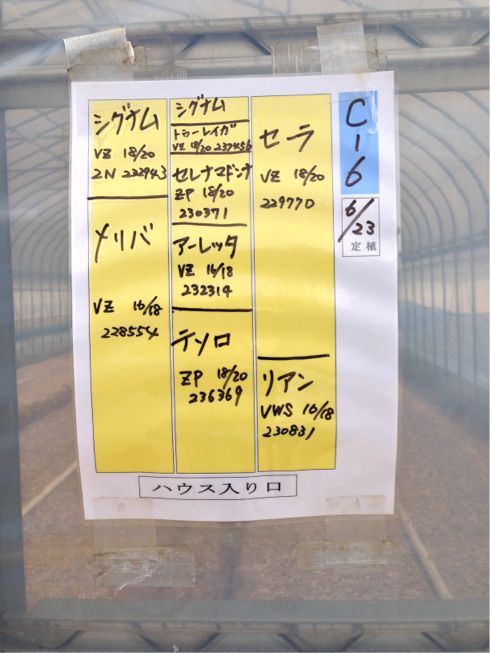 C-6
6/23
定植
シグナム
VZ 18/20
ZN 222943
メリバ
VZ 16/18
228554
シグナム
トゥーレイガ
VZ 18/20 237456
セレナマドンナ
ZP 18/20
230371
アーレッタ
VZ 16/18
232314
テソロ
ZP 18/20
236369
セラ
VZ 18/20
229770
リアン
VWS 16/18
230831
ハウス入り口